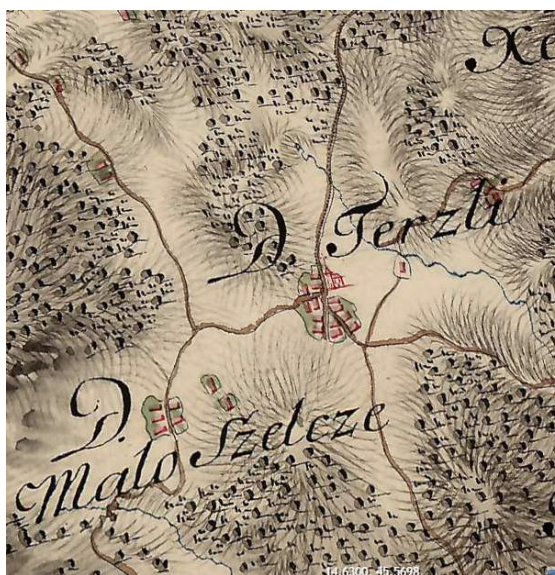 D. Terzli
D.
Malo Szelcze
14.6300 45.5698